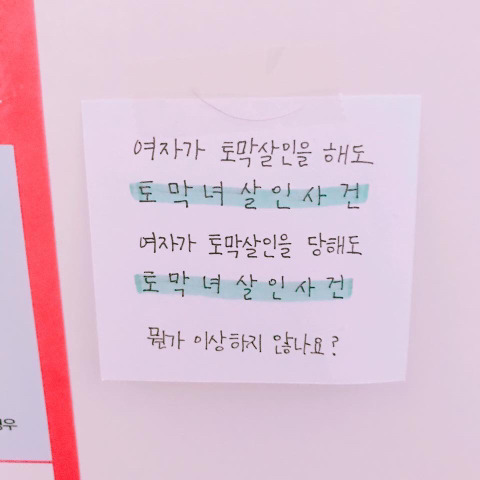 여자가 토막살인을 해도
토막녀살인사건
여자가 토막살인을 당해도
토막녀살인사건
뭔가 이상하지 않나요?